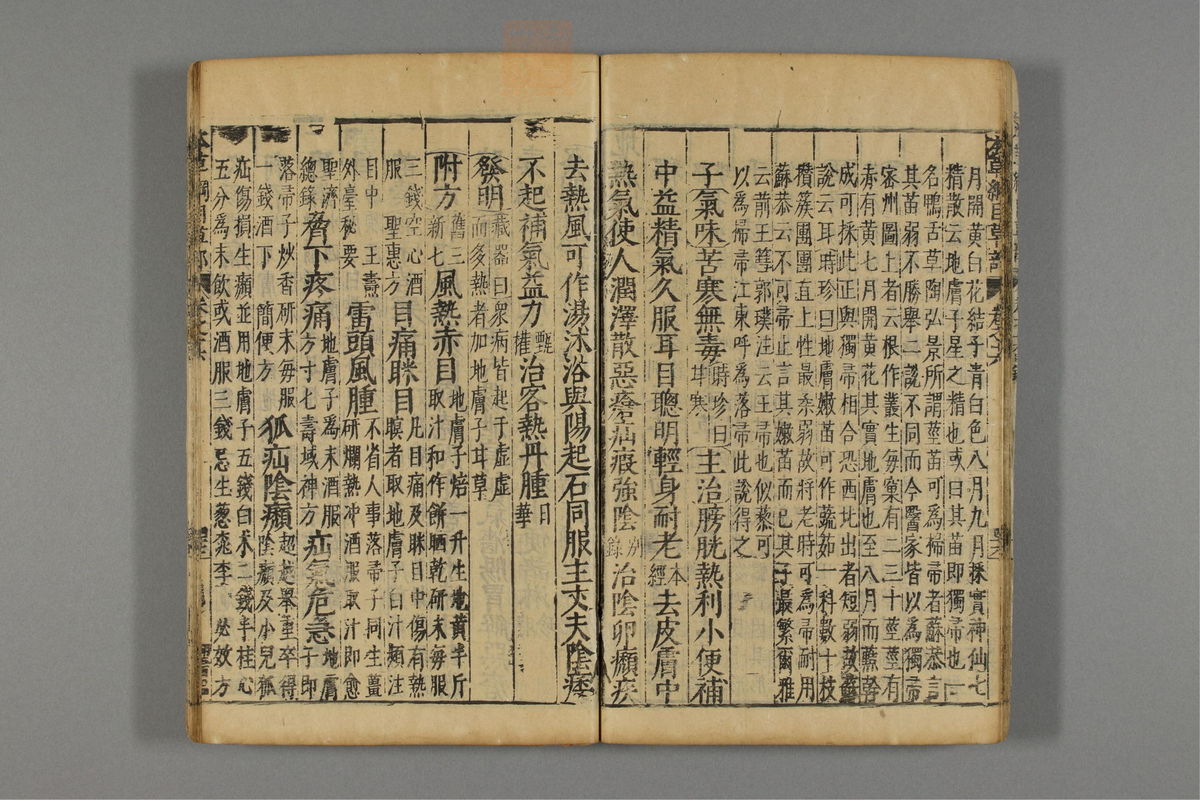 月開黃白花結子青白色八月九月採實神仙七
精散云地膚子星之精也或曰其苗即獨帚也一
名鴨舌草陶弘景所謂莖苗可爲掃帚者蘇恭言
其苗弱不勝舉二說不同而今醫家皆以爲獨帚
密州圖上者云根作叢生每窠有二三十莖莖有
赤有黃七月開黃花其實地膚也至八月而𧂐幹
成可採此正與獨帚相合恐西北出者短弱故蘇
說云耳時珍曰地膚嫩苗可作蔬茹一科數十枝
攢簇團團直上性最柔弱故將老時可爲帚耐用
蘇恭云不可帚止言其嫩苗而已其子最繁爾雅
云葥王蔧郭璞注云王帚也似藜可
以爲掃帚江東呼爲落帚此說得之
子氣味苦寒無毒時珍曰甘寒主治膀胱熱利小便補
中益精氣久服耳目聰明輕身耐老本經去皮膚中
熱氣使人潤澤散惡瘡疝瘕強陰別錄治陰卵㿗疾
去熱風可作湯沐浴與陽起石同服主丈夫陰痿
不起補氣益力甄權治客熱丹腫日華
發明藏器曰衆病皆起于虛虛而多熱者加地膚子甘草
附方舊三新七風熱赤目地膚子焙一升生地黃半斤取汁和作餅晒乾研末每服
三錢空心酒服 聖惠方 目痛眯目凡目痛及眯目中傷有熱瞑者取地膚子白汁頻注
目中 王燾外臺秘要 雷頭風腫不省人事落帚子同生薑研爛熱冲酒服取汁即愈
聖濟總錄 脅下疼痛地膚子爲末酒服方寸七壽域神方 疝氣危急地膚子即
落帚子炒香研末每服一錢酒下 簡便方 狐疝陰㿗超越舉重卒得陰㿗及小兒狐
疝傷損生㿗並用地膚子五錢白朮二錢半桂心
五分爲末飲或酒服三錢忌生葱桃李 必效方
本草綱目草部